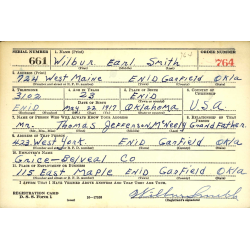 SERIAL NUMBER 1. NAME (Print) ORDER NUMBER
661 Wilbur Earl Smith 764
(First) (Middle) (Last)
2. ADDRESS (Print)
724 West Maine ENID Garfield Okla
(Number and street) (Town) (County) (State)
3. TELEPHONE 4. AGE IN YEARS 5. PLACE OF BIRTH 6. COUNTRY OF CITIZENSHIP
3102 23 ENID
DATE OF BIRTH
ENID May 22 1917 Oklahoma U.S.A.
7. NAME OF PERSON WHO WILL ALWAYS KNOW YOUR ADDRESS 8. RELATIONSHIP OF THAT PERSON
Mr. Thomas Jefferson McNeely Grandfather
9. ADDRESS OF THAT PERSON
423 West York. ENID Garfield Okla
10. EMPLOYER'S NAME
Grice-Belveal Co
11. PLACE OF EMPLOYMENT OR BUSINESS
115 East Maple ENID Garfield Okla
I AFFIRM THAT I HAVE VERIFIED ABOVE ANSWERS AND THAT THEY ARE TRUE.
REGISTRATION CARD
D. S. S. Form 1 Wilbur Smith
(Registrant's signature)